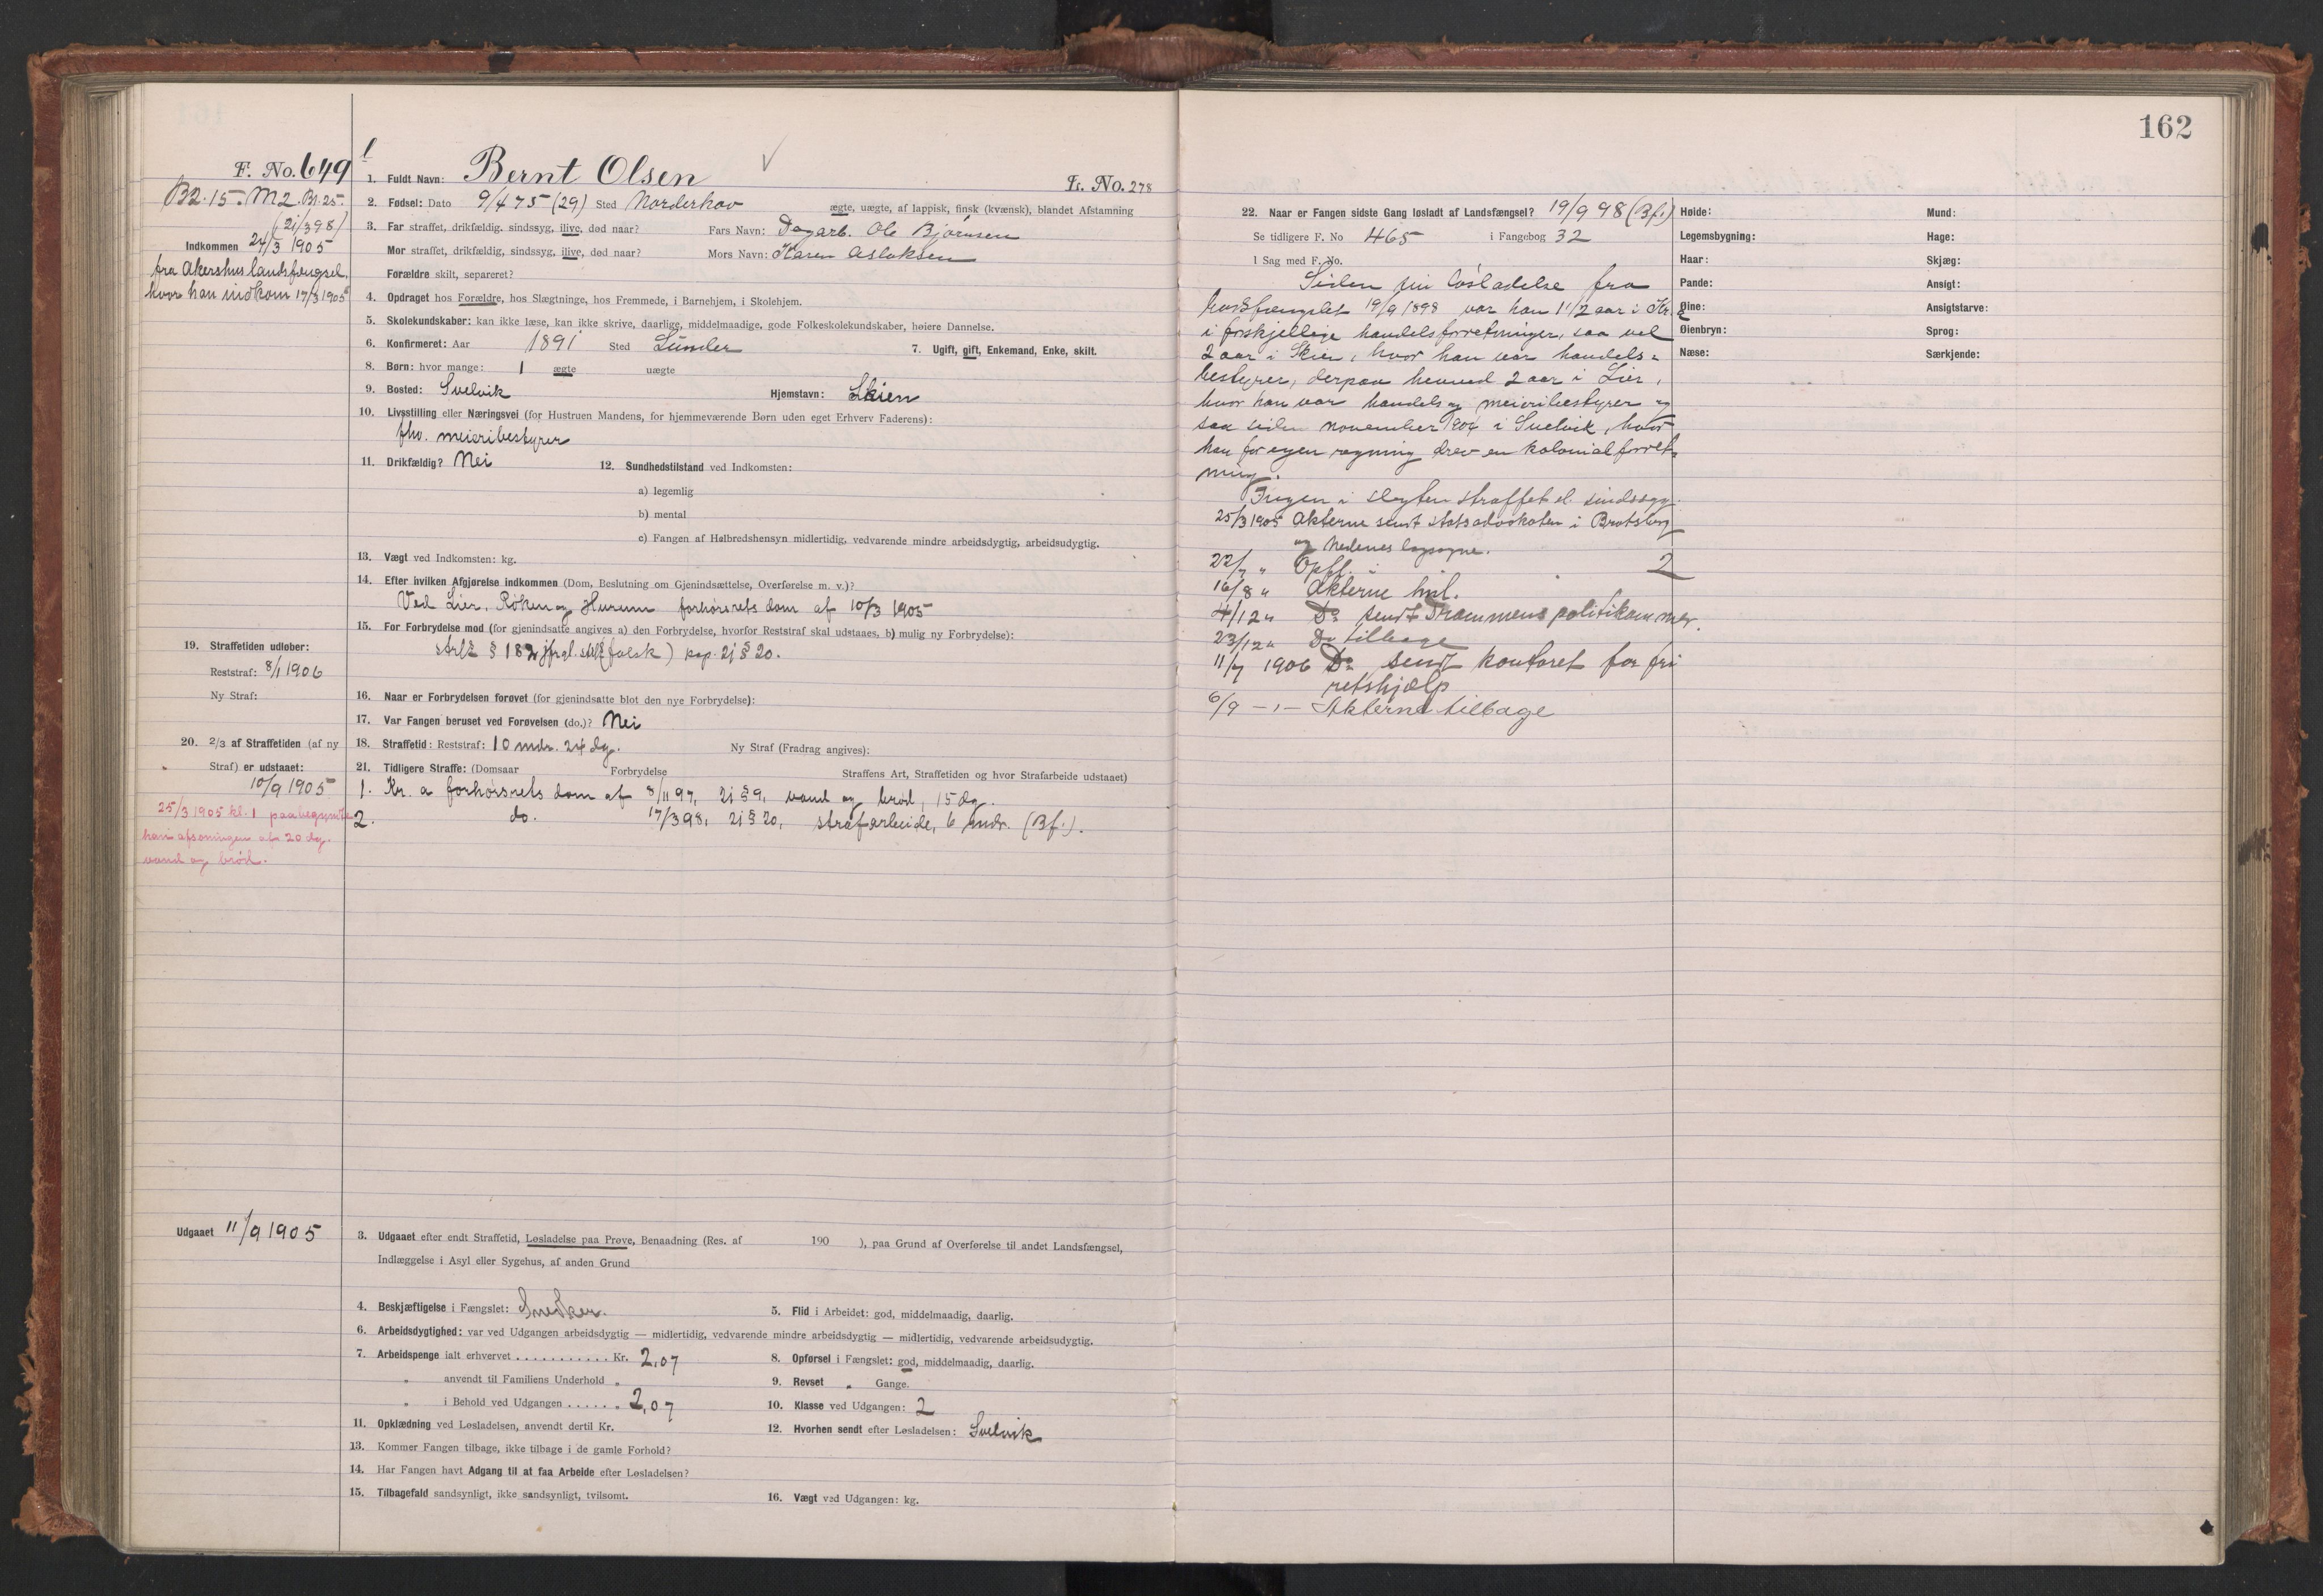 162
F. No. 649
B2. 15. M2. Br. 25.
(21/3 98)
Indkommen 24/3 1905
fra Akershus landsfængsel,
hvor han indkom 17/3 1905
1. Fuldt Navn: Bernt Olsen
L. No. 278
2. Fødsel: Dato 9/4 75 (29) Sted Norderhov ægte, uægte, af lappisk, finsk (kvænsk), blandet Afstamning
3. Far straffet, drikfældig, sindssyg, ilive, død naar? Fars Navn: Dagarb. Ole Bjørnsen
Mor straffet, drikfældig, sindssyg, ilive, død naar? Mors Navn: Karen Aslaksen
Forældre skilt, separeret?
4. Opdraget hos Forældre, hos Slægtninge, hos Fremmede, i Barnehjem, i Skolehjem.
5. Skolekundskaber: kan ikke læse, kan ikke skrive, daarlige, middelmaadige, gode Folkeskolekundskaber, høiere Dannelse.
6. Konfirmeret: Aar 1891 Sted Lunder 7. Ugift, gift, Enkemand, Enke, skilt.
8. Børn: hvor mange: 1 ægte uægte
9. Bosted: Svelvik Hjemstavn: Skien
10. Livsstilling eller Næringsvei (for Hustruen Mandens, for hjemmeværende Børn uden eget Erhverv Faderens):
fhv. meieribestyrer
11. Drikfældig? Nei 12. Sundhedstilstand ved Indkomsten:
a) legemlig
b) mental
c) Fangen af Helbredshensyn midlertidig, vedvarende mindre arbeidsdygtig, arbeidsudygtig.
13. Vægt ved Indkomsten: kg.
14. Efter hvilken Afgjørelse indkommen (Dom, Beslutning om Gjenindsættelse, Overførelse m. v.)?
Ved Lier, Røken og Hurum forhørsrets dom af 10/3 1905
15. For Forbrydelse mod (for gjenindsatte angives a) den Forbrydelse, hvorfor Reststraf skal udstaaes, b) mulig ny Forbrydelse):
(falsk) kap. 21 § 20.
16. Naar er Forbrydelsen forøvet (for gjenindsatte blot den nye Forbrydelse):
17. Var Fangen beruset ved Forøvelsen (do.)? Nei
18. Straffetid: Reststraf: 10 mdr. 24 dg. Ny Straf (Fradrag angives):
19. Straffetiden udløber:
Reststraf: 8/1 1906
Ny Straf:
20. 2/3 af Straffetiden (af ny
Straf) er udstaaet:
10/9 1905
25/3 1905 kl. 1 paabegyndte
han afsoningen af 20 dg.
vand og brød.
21. Tidligere Straffe: (Domsaar Forbrydelse Straffens Art, Straffetiden og hvor Strafarbeide udstaaet)
1. Kr. a forhørsrets dom af 8/11 97, 21 § 9, vand og brød, 15 dg.
2. do. 17/3 98, 21 § 20, strafarbeide, 6 mdr. (Bf.).
Udgaaet 11/9 1905
3. Udgaaet efter endt Straffetid, Løsladelse paa Prøve, Benaadning (Res. af 190 ), paa Grund af Overførelse til andet Landsfængsel,
Indlæggelse i Asyl eller Sygehus, af anden Grund
4. Beskjæftigelse i Fængslet: Snedker. 5. Flid i Arbeidet: god, middelmaadig, daarlig.
6. Arbeidsdygtighed: var ved Udgangen arbeidsdygtig — midlertidig, vedvarende mindre arbeidsdygtig — midlertidig, vedvarende arbeidsudygtig.
7. Arbeidspenge ialt erhvervet ........... Kr. 2,07 8. Opførsel i Fængslet: god, middelmaadig, daarlig.
" anvendt til Familiens Underhold " 9. Revset " Gange.
" i Behold ved Udgangen ...... " 2,07 10. Klasse ved Udgangen: 2
11. Opklædning ved Løsladelsen, anvendt dertil Kr. 12. Hvorhen sendt efter Løsladelsen: Svelvik
13. Kommer Fangen tilbage, ikke tilbage i de gamle Forhold?
14. Har Fangen havt Adgang til at faa Arbeide efter Løsladelsen?
15. Tilbagefald sandsynligt, ikke sandsynligt, tvilsomt. 16. Vægt ved Udgangen: kg.
22. Naar er Fangen sidste Gang løsladt af Landsfængsel? 19/9 98 (Bf.)
Se tidligere F. No 465 i Fangebog 32
I Sag med F. No.
Siden sin løsladelse fra
bodsfængslet 19/9 1898 var han 1 1/2 aar i Kr. a
i forskjellige handelsforretninger, saa vel
2 aar i Skien, hvor han var handels-
bestyrer, derpaa henved 2 aar i Lier,
hvor han var handels og meieribestyrer og
saa siden november 1904 i Svelvik, hvor
han for egen regning drev en kolonialforret-
ning.
Ingen i slegten straffet el. sindssyg.
25/3 1905 Akterne sendt statsadvokaten i Bratsberg
og Nedenes lagsogne.
22/7 " Opfl. 2
16/8 " Akterne hid.
4/12 " Do sendt Drammens politikammer.
23/12 " Do tilbage
11/7 1906 Do sendt kontoret for fri
retshjælp
6/9 -"- Akterne tilbage
Høide: Mund:
Legemsbygning: Hage:
Haar: Skjæg:
Pande: Ansigt:
Øine: Ansigtsfarve:
Øienbryn: Sprog:
Næse: Særkjende: